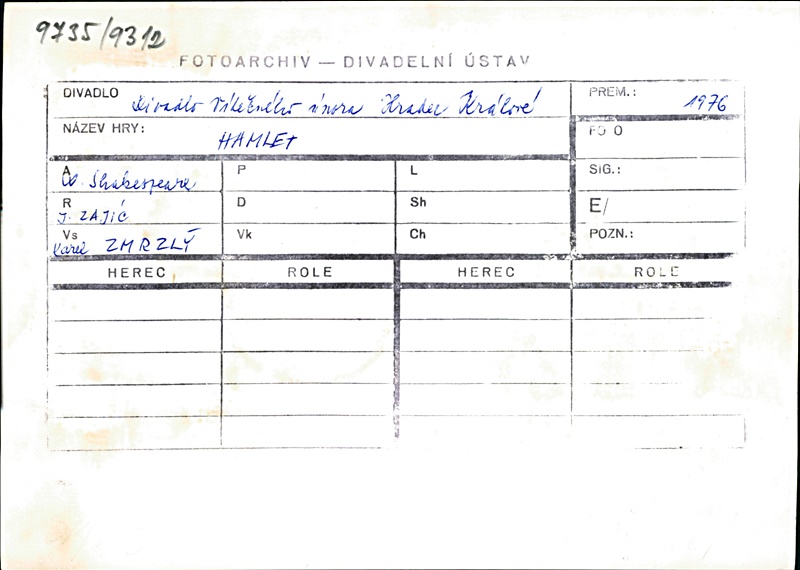 9735/9312
FOTOARCHIV — DIVADELNÍ ÚSTAV
DIVADLO Divadlo Vítězného února Hradec Králové PREM.: 1976
NÁZEV HRY: HAMLET FO O
A W. Shakespeare P L SIG.:
R J. ZAJÍC D Sh E/
Vs Karel ZMRZLÝ Vk Ch POZN.:
HEREC ROLE HEREC ROLE